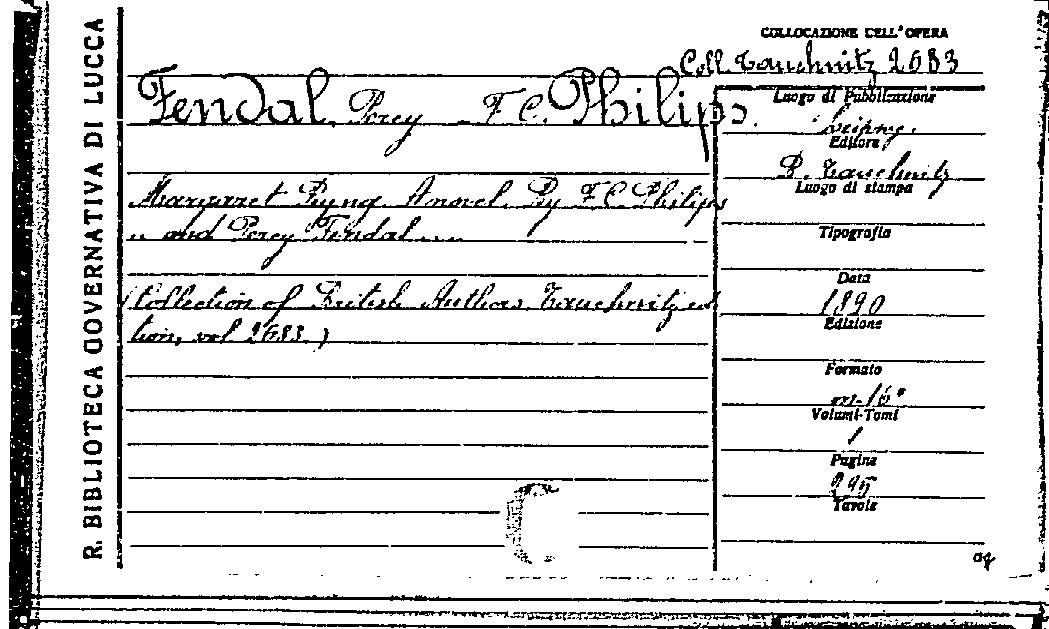 R. BIBLIOTECA GOVERNATIVA DI LUCCA
COLLOCAZIONE DELL'OPERA
Coll. Tauchnitz 2683
Fendal Percy - F. C. Philips.
Margaret Byng. A novel. By F. C. Philips
.. and Percy Fendal ....
(Collection of British Authors Tauchnitz edi
tion, vol 2683.)
Luogo di Pubblicazione
Leipzig.
Editore
B. Tauchnitz
Luogo di stampa
Tipografia
Data
1890
Edizione
Formato
in-16°
Volumi-Tomi
1
Pagine
295
Tavole